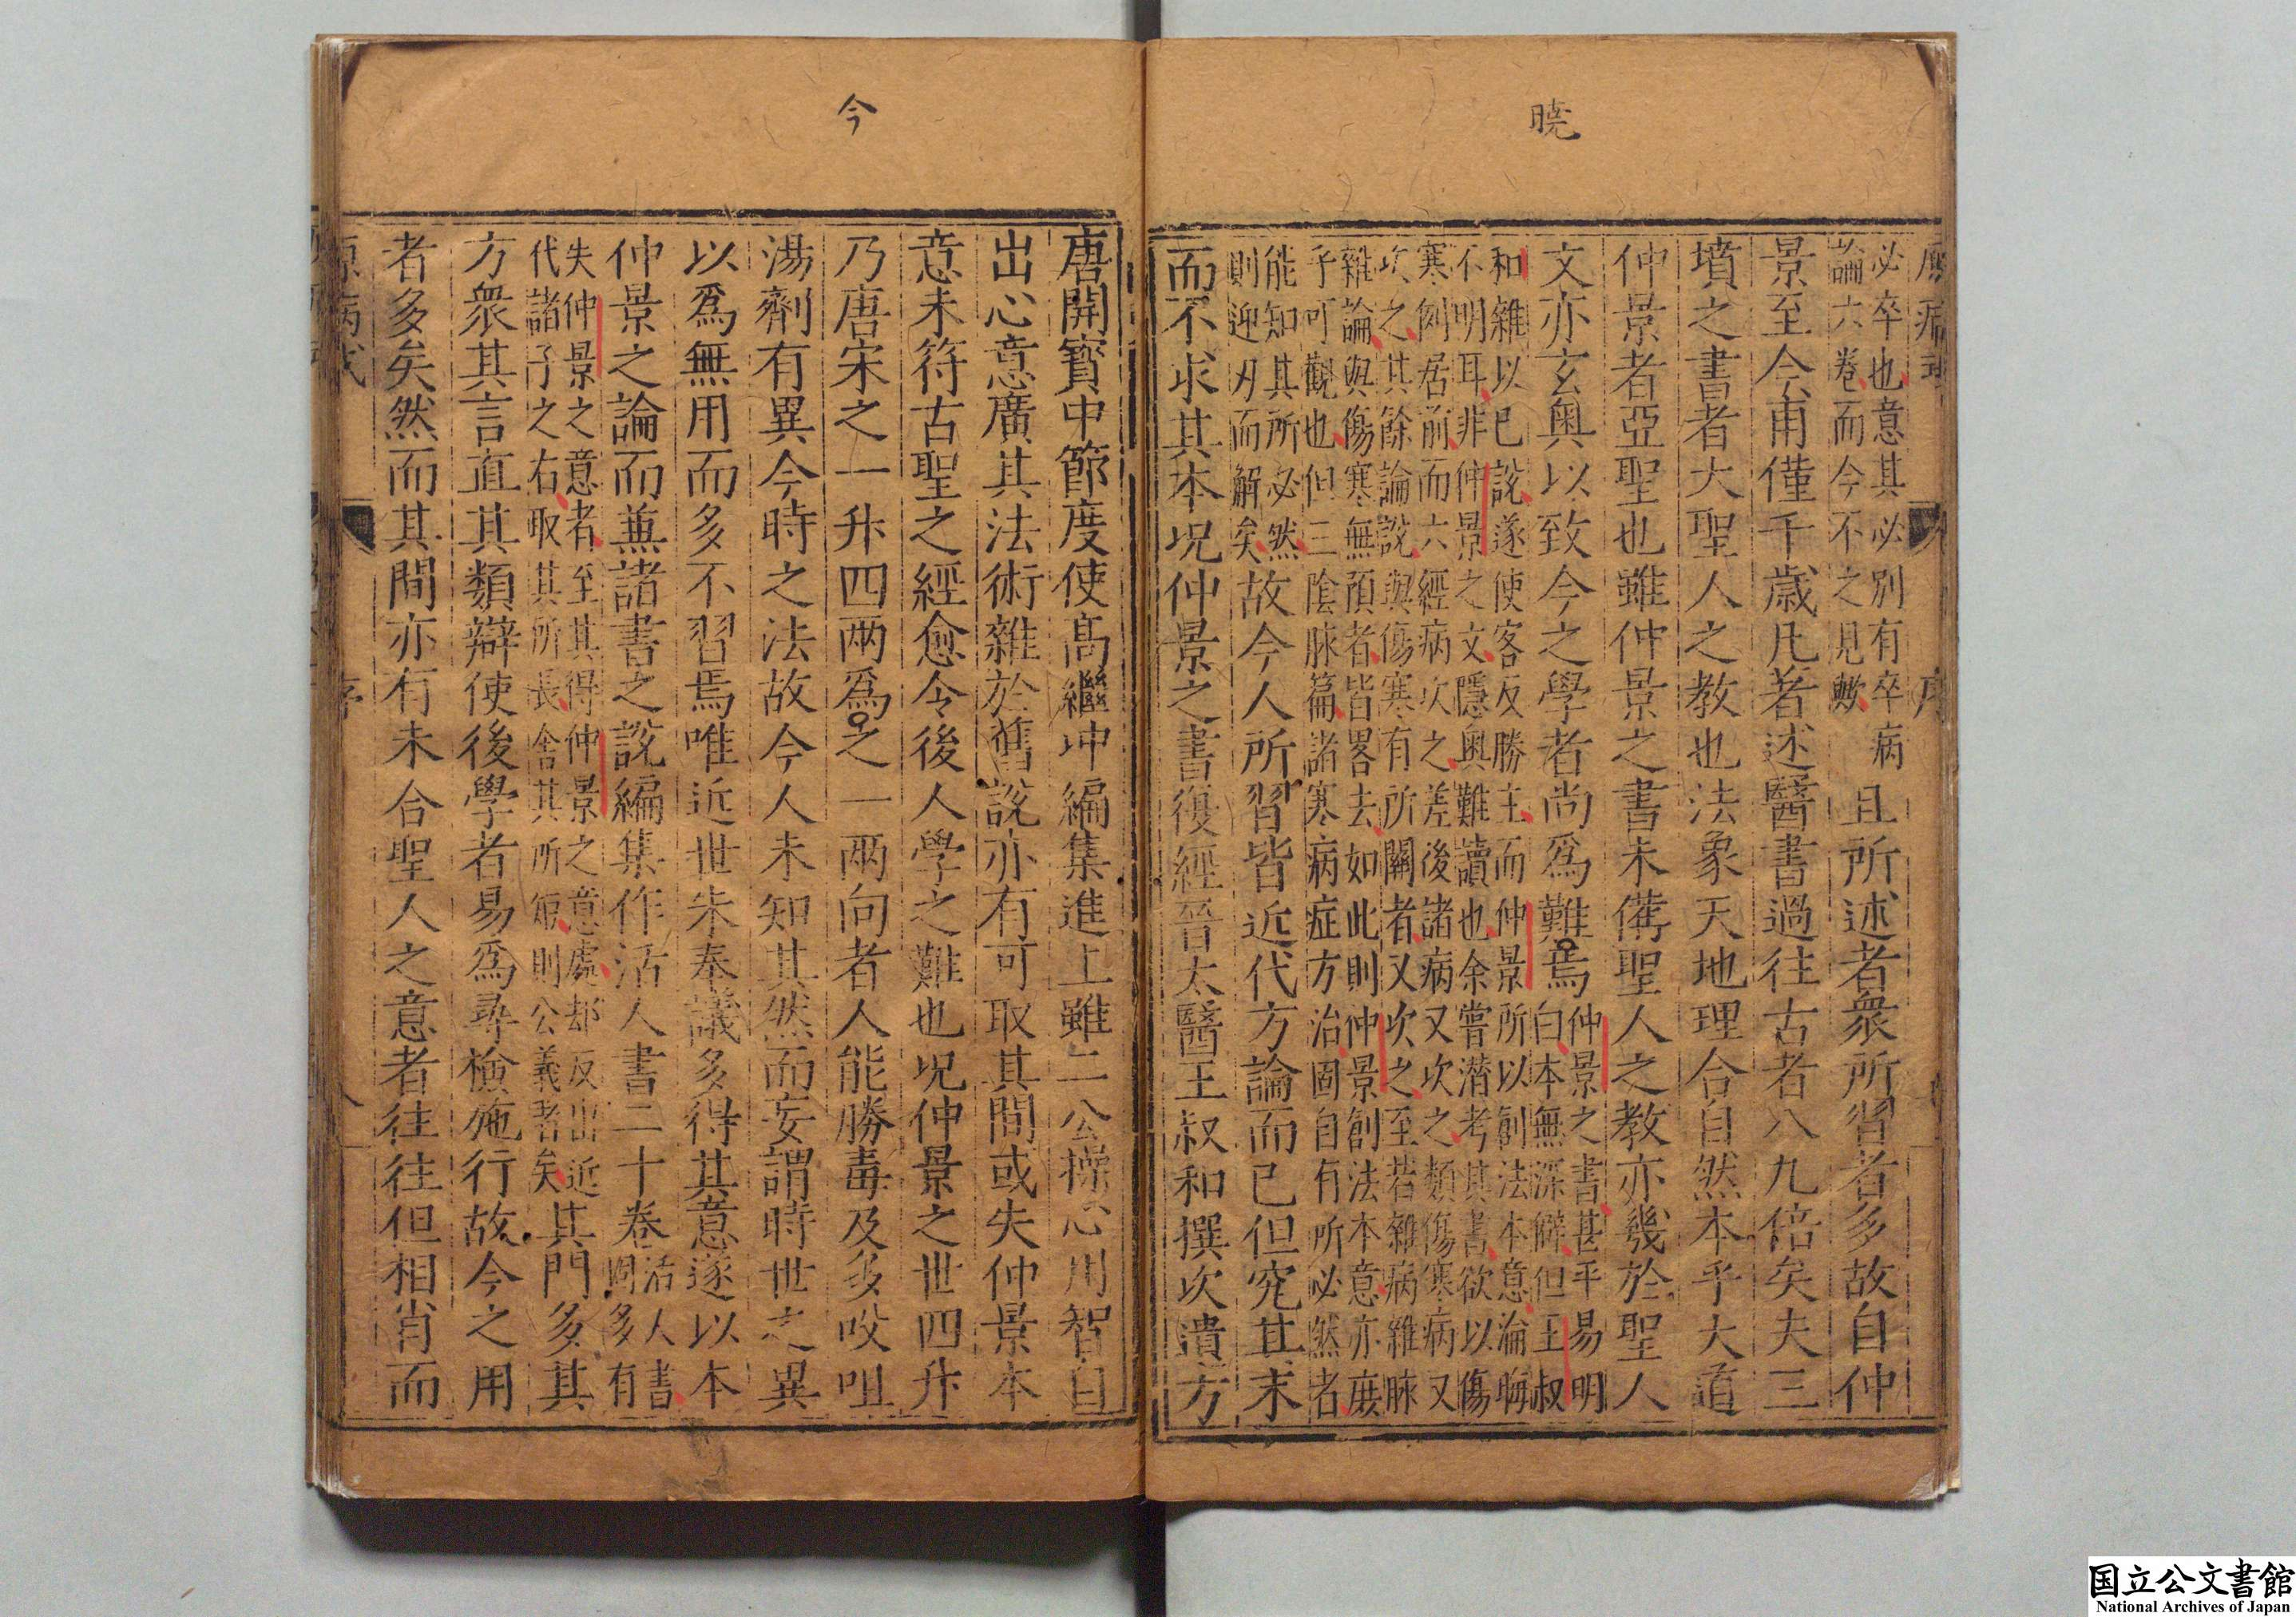 暁
必卒也意其必別有卒病
論六卷而今不之見歟
且所述者衆所習者多故自仲
景至今甫僅千歲凡著述醫書過往古者八九倍矣夫三
墳之書者大聖人之教也法象天地理合自然本乎大道
仲景者亞聖也雖仲景之書未備聖人之教亦幾於聖人
文亦玄奥以致今之學者尚爲難焉
仲景之書甚平易明
白本無深僻但王叔
和雜以已說遂使客反勝主而仲景所以創法本意淪晦
不明耳非仲景之文隱奥難讀也余嘗潜考其書欲以傷
寒例居前而六經病次之差後諸病又次之類傷寒病又
次之其餘論說與傷寒有所關者又次之至若雜病雜脉
雜論與傷寒無預者皆畧去如此則仲景創法本意亦庻
乎可觀也但三陰脉篇諸寒病症方治固自有所必然者
能知其所必然
則迎刃而解矣
故今人所習皆近代方論而已但究其末
而不求其本况仲景之書復經晉太醫王叔和撰次遺方
今
唐開寳中節度使高繼冲編集進上雖二公操心用智自
出心意廣其法術雜於舊說亦有可取其間或失仲景本
意未符古聖之經愈令後人學之難也况仲景之世四升
乃唐宋之一升四两爲之一兩向者人能勝毒及多㕮咀
湯劑有異今時之法故今人未知其然而妄謂時世之異
以爲無用而多不習焉唯近世朱奉議多得其意遂以本
仲景之論而兼諸書之說編集作活人書二十卷
活人書
間多有
失仲景之意者至其得仲景之意處却反出近
代諸子之右取其所長舍其所短則公義者矣
其門多其
方衆其言直其類辯使後學者易爲尋檢施行故今之用
者多矣然而其間亦有未合聖人之意者往往但相肖而
国立公文書館
National Archives of Japan